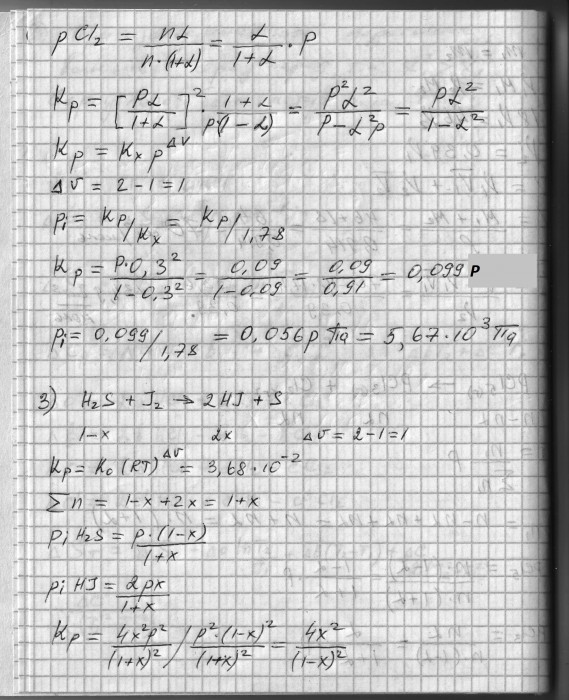 pCl₂ = nα / n·(1+α) = α / 1+α · P
Kp = [Pα / 1+α]² · 1+α / P·(1-α) = P²α² / P-α²P = Pα² / 1-α²
Kp = Kx p^Δν
Δν = 2-1=1
pi = Kp/Kx = Kp/1,78
Kp = P·0,3² / 1-0,3² = 0,09 / 1-0,09 = 0,09 / 0,91 = 0,099 P
pi = 0,099/1,78 = 0,056p Па = 5,67·10³ Па
3) H₂S + J₂ → 2HJ + S
1-x 2x Δν = 2-1=1
Kp = K₀(RT)^Δν = 3,68·10⁻²
Σn = 1-x+2x = 1+x
pi H₂S = p·(1-x) / 1+x
pi HJ = 2px / 1+x
Kp = 4x²p² / (1+x)² / p²·(1-x)² / (1+x)² = 4x² / (1-x)²